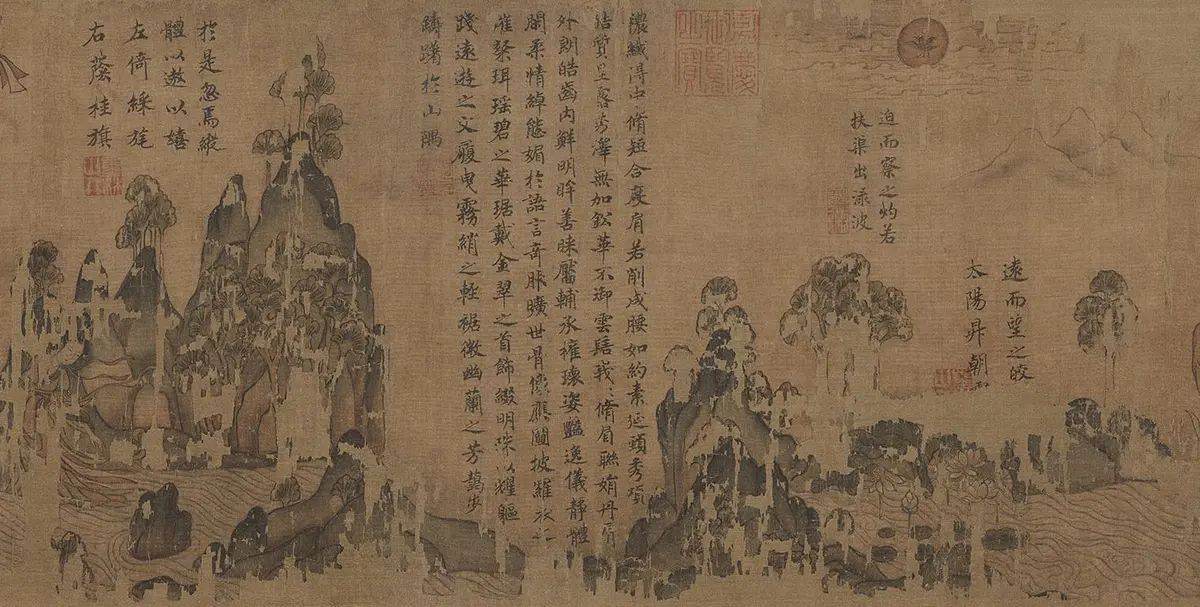 遠而望之皎
太陽昇朝
迫而察之灼若
扶渠出淥波
嘉慶御覽之寶
襛纖得中脩短合度肩若削成腰如約素延頸秀項
皓質呈露芳澤無加鈆華不御雲髻峩〻脩眉聯娟丹脣
外朗皓齒內鮮明眸善睞靨輔承權瓌姿豔逸儀靜體
閑柔情綽態媚於語言奇服曠世骨像應圖披羅衣之
璀粲珥瑤碧之華琚戴金翠之首飾綴明珠以耀軀
踐遠遊之文履曳霧綃之輕裾微幽蘭之芳藹步
躊躇於山隅
於是忽焉縱
體以遨以嬉
左倚綵旄
右蔭桂旗